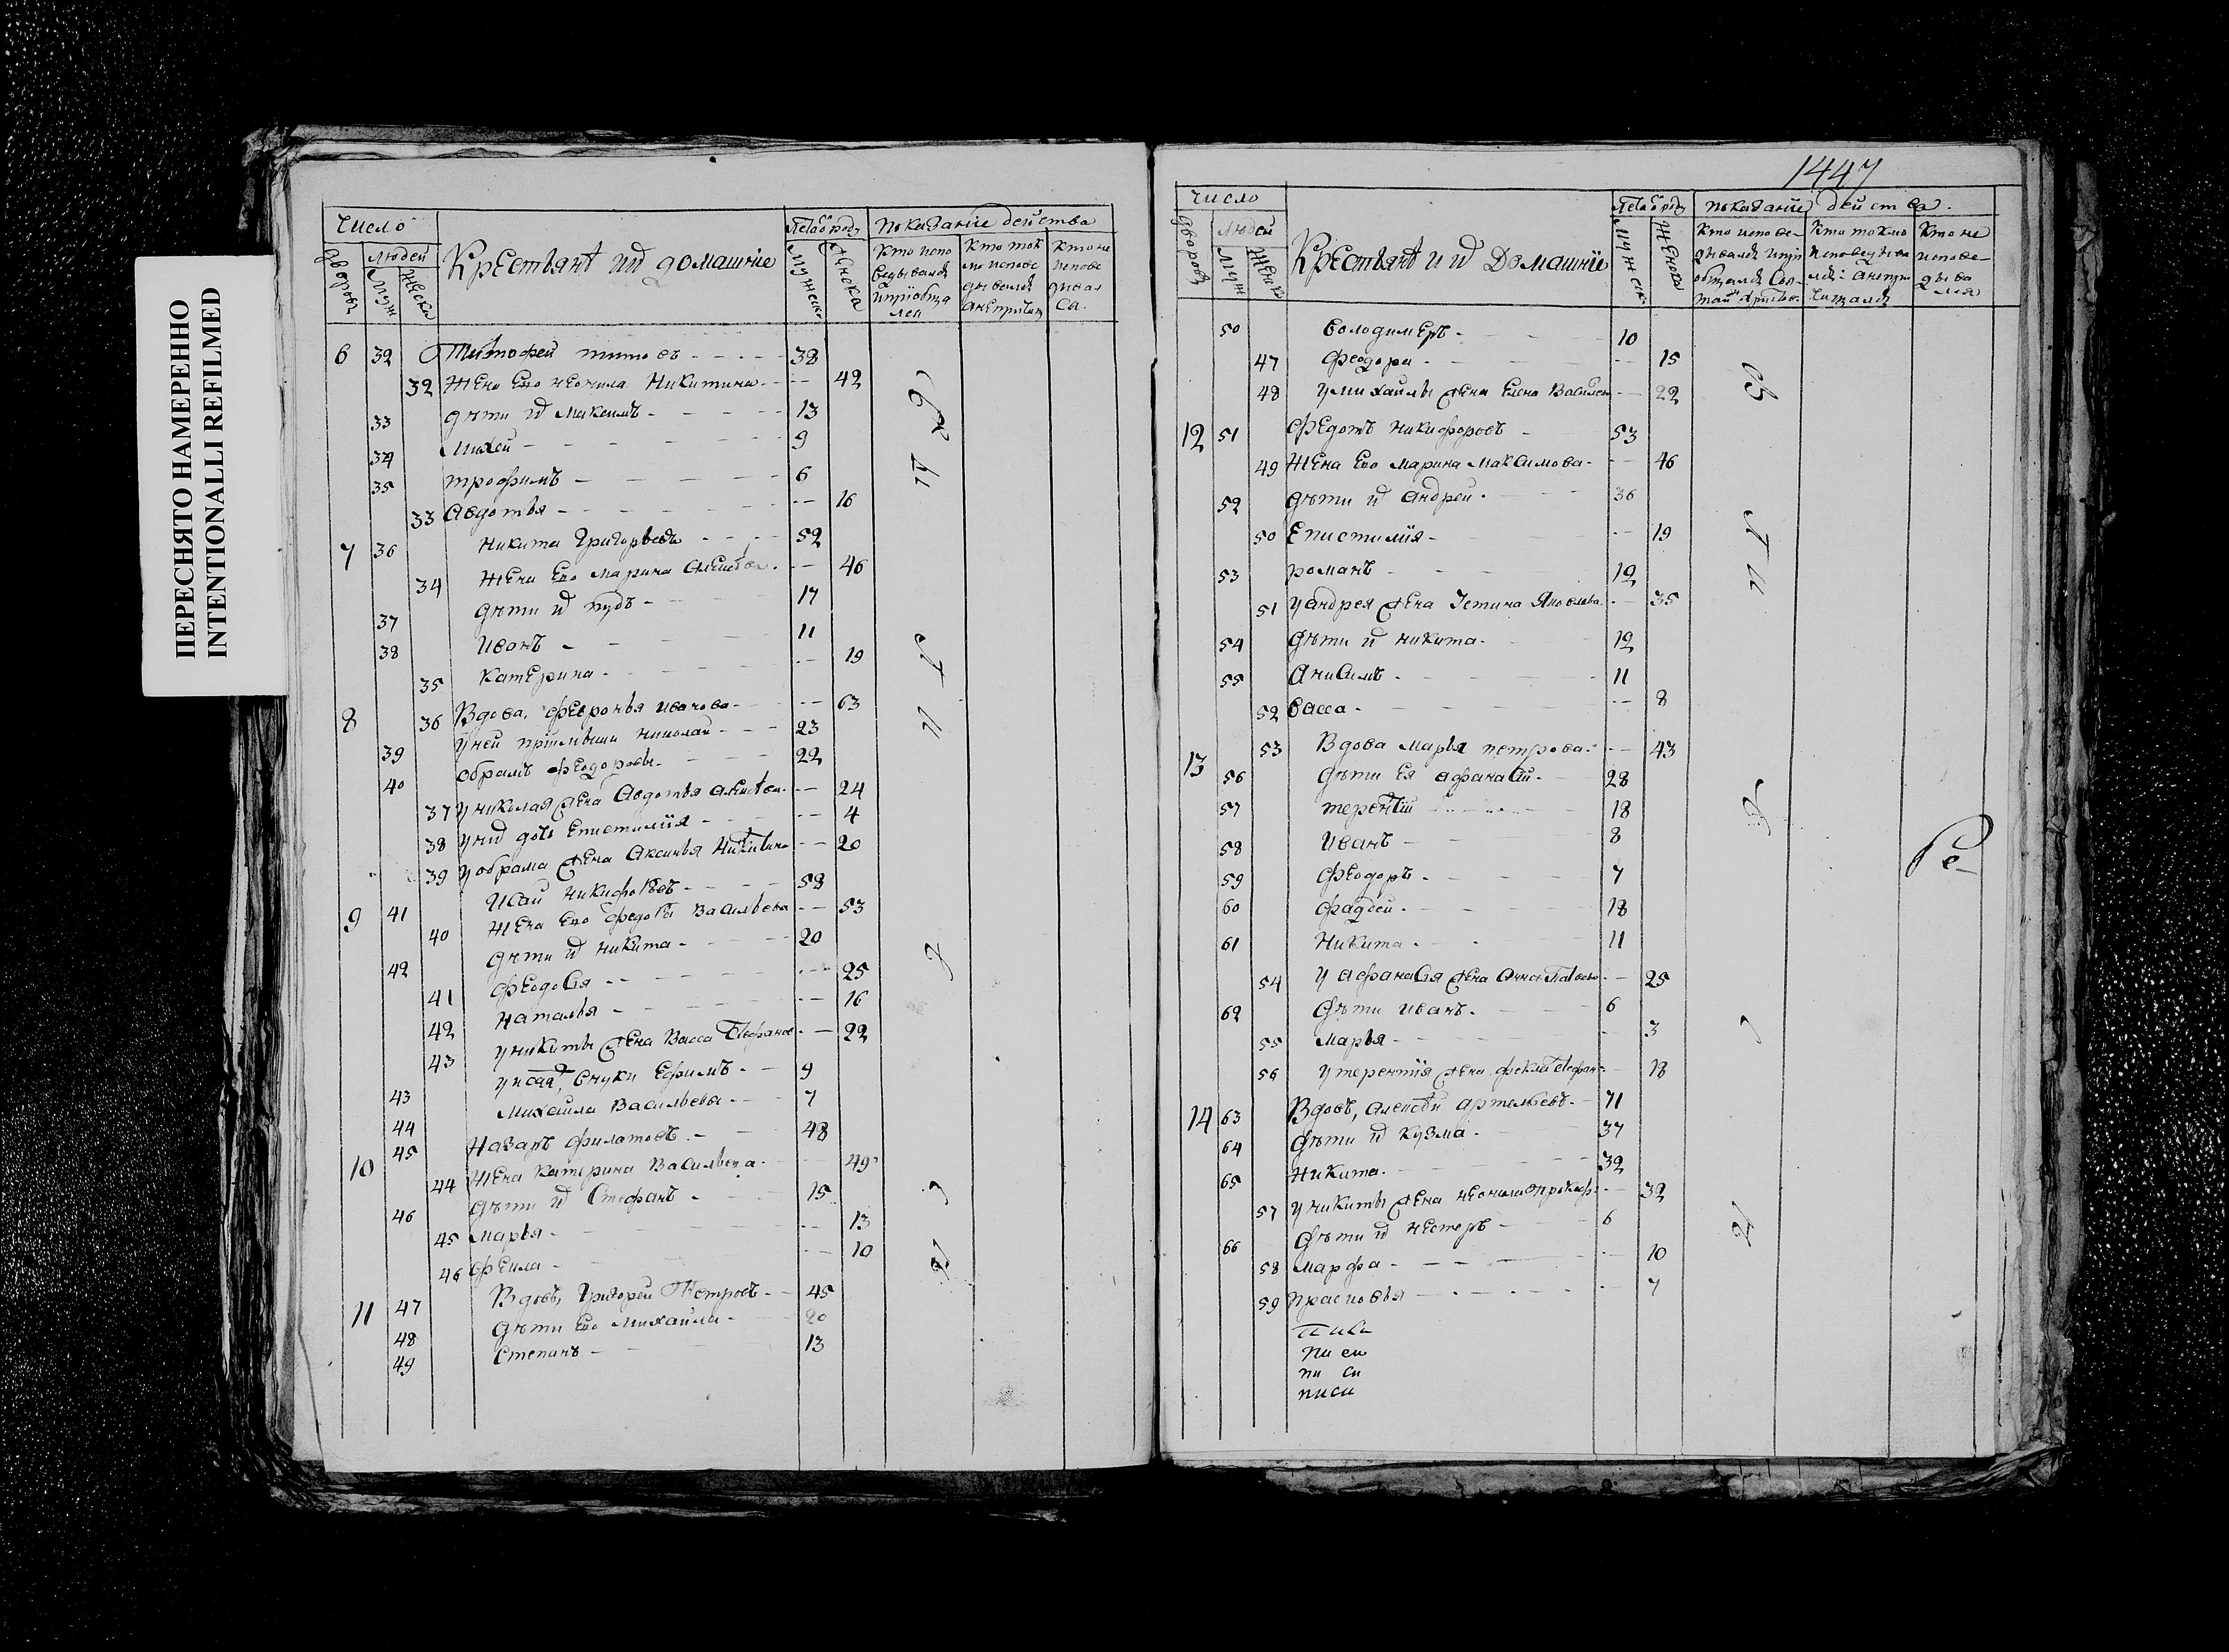 ПЕРЕСНЯТО НАМЕРЕННО
INTENTIONALLI REFILMED
Число
Людей
дворовъ
Муж
Женска
Крестьянѣ ихъ домашніе
Мужска
Женска
Показаніе действа
Кто испо
ведывался
и пріобща
лся
Кто ток
мо испове
дывался
а не причащ
Кто не
испове
дывал
ся
6 32 Тимофей Титовъ 38
32 Жена Ево Неонила Никитина 42
33 Дѣти ихъ Максимъ 13
34 Михей 9
35 Трофимъ 6
33 Авдотья 16
7 36 Никита Григорьевъ 52
34 Жена Ево Марина Алексѣева 46
37 Дѣти ихъ Пудъ 17
38 Иванъ 11
35 Катерина 19
8 36 Вдова Февронья Иванова 63
39 У ней пріимыши Николай 23
40 Обрамъ Феодоровы 22
37 У Николая жена Авдотья Алексѣева 24
38 У них дочь Епистимія 4
39 У Обрама жена Аксинья Никитина 20
9 41 Исай Никифоровъ 58
40 Жена Ево Федосья Васильева 53
42 Дѣти ихъ Никита 20
41 Феодосья 25
42 Наталья 16
43 У Никиты жена Васса Стефанов 22
43 У Исая внуки Ефимъ 9
44 Михайла Васильевы 7
10 45 Назаръ Филатовъ 48
44 Жена Катерина Васильева 49
46 Дѣти ихъ Стефанъ 15
45 Марья 13
46 Фекла 10
11 47 Вдовъ, Григорей Петровъ 45
48 Дѣти Ево Михайла 20
49 Степанъ 13
1447
Число
Людей
дворовъ
Муж
Женск
Крестьянѣ ихъ Домашніе
Мужск
Женска
Показаніе действа.
Кто испове-
дывался и прі
общался Свя-
Кто токмо
исповедыва
лся: а не при
чащался
Кто не
испове-
дыва
лся
50 Володимеръ 10
47 Феодора 15
48 У Михайлы жена Елена Васильев 22
12 51 Федотъ Никифоровъ 53
49 Жена Ево Марина Максимова 46
52 Дѣти ихъ Андрей 36
50 Епистимія 19
53 Романъ 12
51 У Андрея жена Устина Яковлева 35
54 Дѣти ихъ Никита 12
55 Анисимъ 11
52 Васса 8
13 53 Вдова Марья Петрова 43
56 Дѣти Ея Афанасій 28
57 Терентій 18
58 Иванъ 8
59 Феодоръ 7
60 Фаддей 18
61 Никита 11
54 У Афанасья жена Анна Павлова 25
62 Дѣти Иванъ 6
55 Марья 3
56 У Терентія жена Фекла Стефан 18
14 63 Вдовъ, Алексѣй Артемьевъ 71
64 Дѣти ихъ Кузма 37
65 Никита 32
57 У Никиты жена Неонила Прокоф 32
66 Дѣти ихъ Нестеръ 6
58 Марфа 10
59 Прасковья 7
писи
писи
пи си
писи